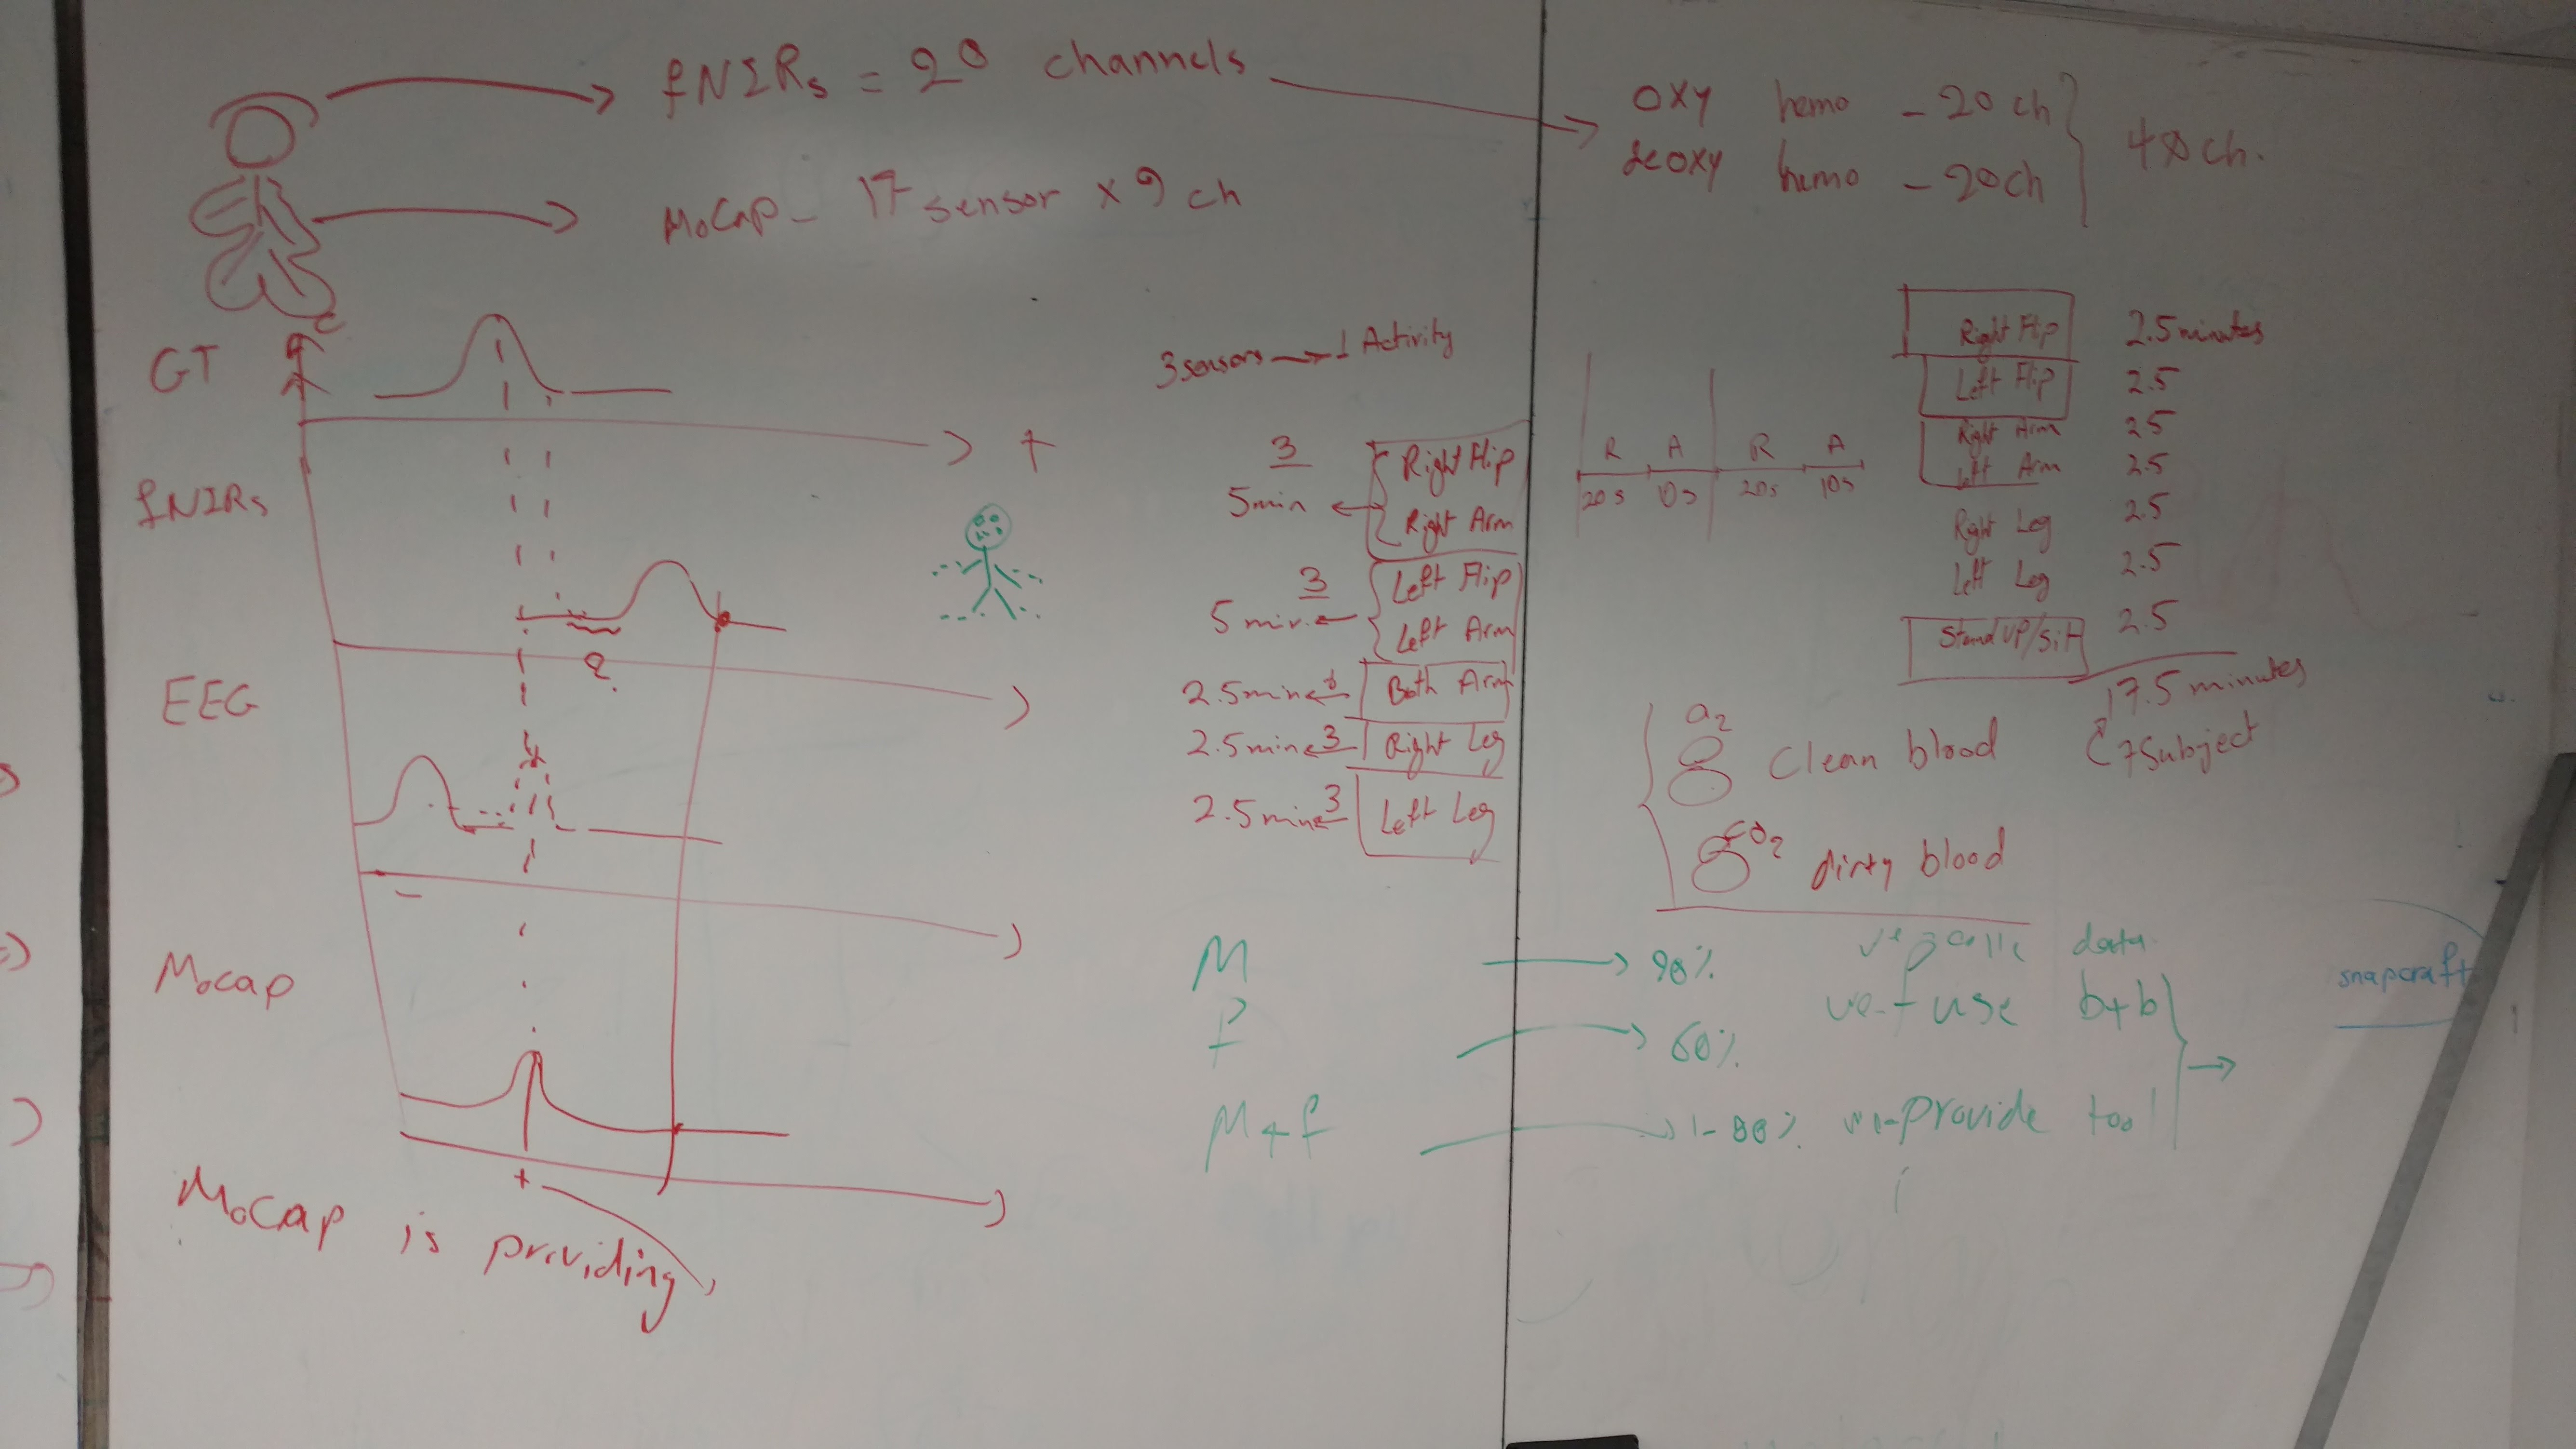 fNIRs = 20 channels
MoCap - 17 sensor x 9 ch
oxy hemo - 20 ch
deoxy hemo - 20 ch
40 ch.
GT
t
fNIRs
?
EEG
-
Mocap
+
MoCap is providing
3 sensors → 1 Activity
3
5 min ← Right Flip
Right Arm
3
5 min. ← Left Flip
Left Arm
2.5 min ← Both Arm
2.5 min ← 3 Right Leg
2.5 min ← 3 Left Leg
R A R A
20s 10s 20s 10s
Right Flip 2.5 minutes
Left Flip 2.5
Right Arm 2.5
Left Arm 2.5
Right Leg 2.5
Left Leg 2.5
Stand up/Sit 2.5
17.5 minutes
7 Subject
Clean blood
dirty blood
M → 90%
F → 60%
M + f
data
we - fuse b+b
provide tool
snapcraft